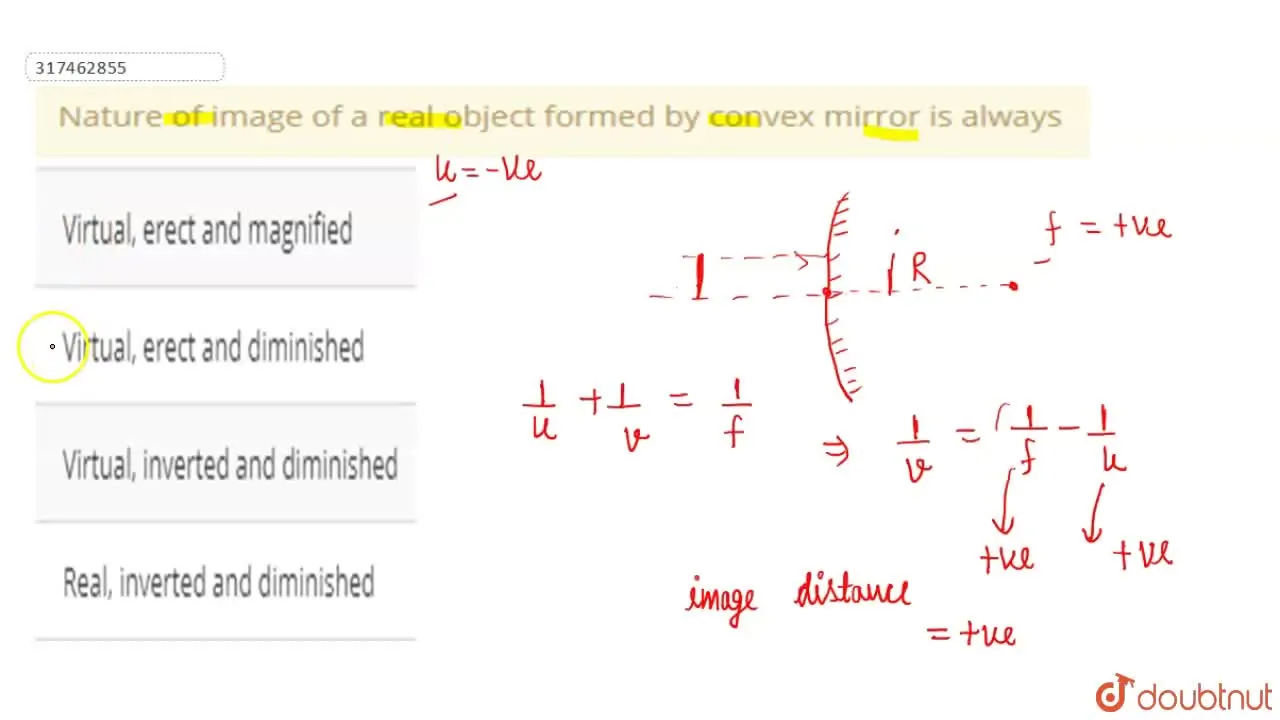 317462855
Nature of image of a real object formed by convex mirror is always
u = -ve
Virtual, erect and magnified
f = +ve
R
Virtual, erect and diminished
1/u + 1/v = 1/f
⇒ 1/v = 1/f - 1/u
Virtual, inverted and diminished
+ve +ve
Real, inverted and diminished
image distance
= +ve
doubtnut